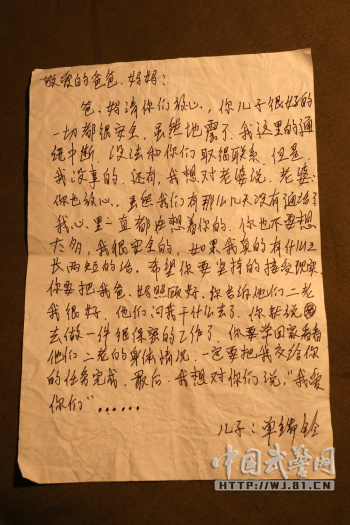 敬爱的爸爸、妈妈:
爸、妈请你们放心,你儿子很好的
一切都很安全,虽然地震了,我这里的通
讯中断,没法和你们取得联系,但是,
我没事的,还有,我想对老婆说,老婆:
你也放心,虽然我们有那么几天没有通话了
我心里一直都在想着你的,你也不要想
太多,我很安全的,如果我真的有什么
长两短的话,希望你要坚持的接受现实
你要把我爸、妈照顾好,你告诉他们二老
我很好,他们问我干什么去了,你就说
去做一件很保密的工作了,你要学回家看看
他们二老的身体情况,一定要把我交给你
的任务完成,最后,我想对你们说,“我爱
你们”……
儿子:单
中国武警网
HTTP://WJ.81.CN